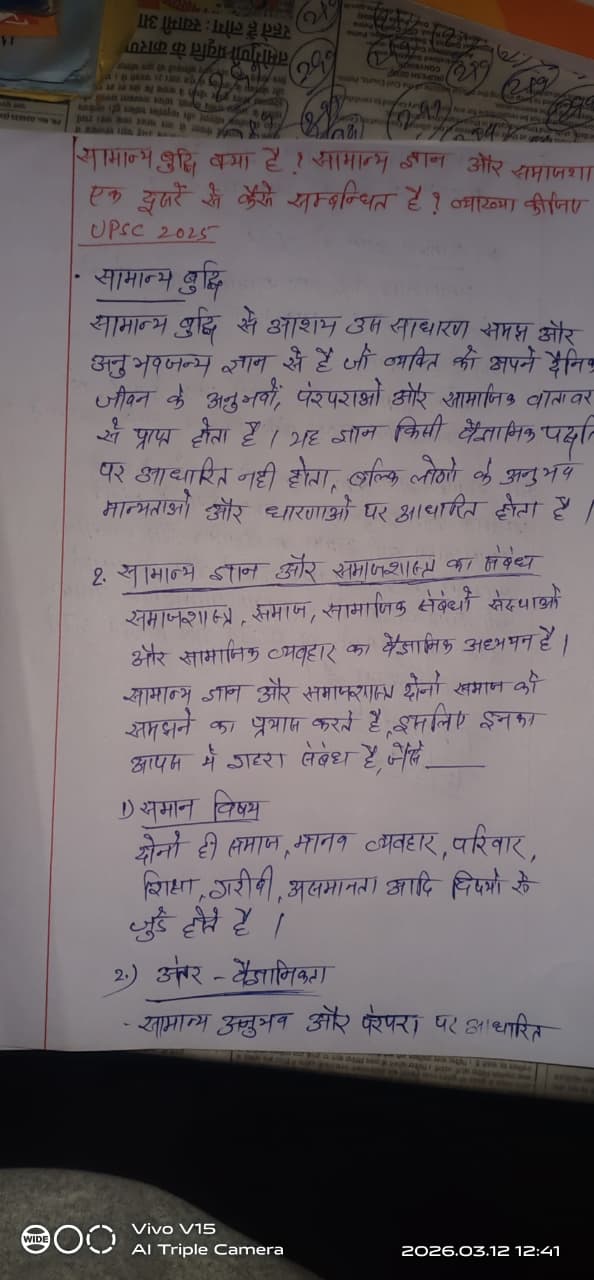 रहते हैं लोग: स्वामी आ
तमोगुणी प्रवृत्ति के कारण
सामान्य बुद्धि क्या है? सामान्य ज्ञान और समाजशा
एक दूसरे से कैसे सम्बन्धित है? व्याख्या कीजिए
UPSC 2025
· सामान्य बुद्धि
सामान्य बुद्धि से आशय उस साधारण समझ और
अनुभवजन्य ज्ञान से है जो व्यक्ति को अपने दैनिक
जीवन के अनुभवों, परंपराओ और सामाजिक वातावर
से प्राप्त होता है। यह ज्ञान किसी वैज्ञानिक पद्धति
पर आधारित नही होता, बल्कि लोगो के अनुभव
मान्यताओ और धारणाओ पर आधारित होता है।
2. सामान्य ज्ञान और समाजशास्त्र का संबंध
समाजशास्त्र, समाज, सामाजिक संबंधो संस्थाओ
और सामाजिक व्यवहार का वैज्ञानिक अध्ययन है।
सामान्य ज्ञान और समाजशास्त्र दोनो समाज को
समझने का प्रयास करते है, इसलिए इनका
आपस मे गहरा संबंध है, जैसे ——
1) समान विषय
दोनो ही समाज, मानव व्यवहार, परिवार,
शिक्षा, गरीबी, असमानता आदि विषयो से
जुडे होते है।
2.) अंतर - वैज्ञानिकता
- सामान्य अनुभव और परंपरा पर आधारित
WIDE
Vivo V15
AI Triple Camera
2026.03.12 12:41